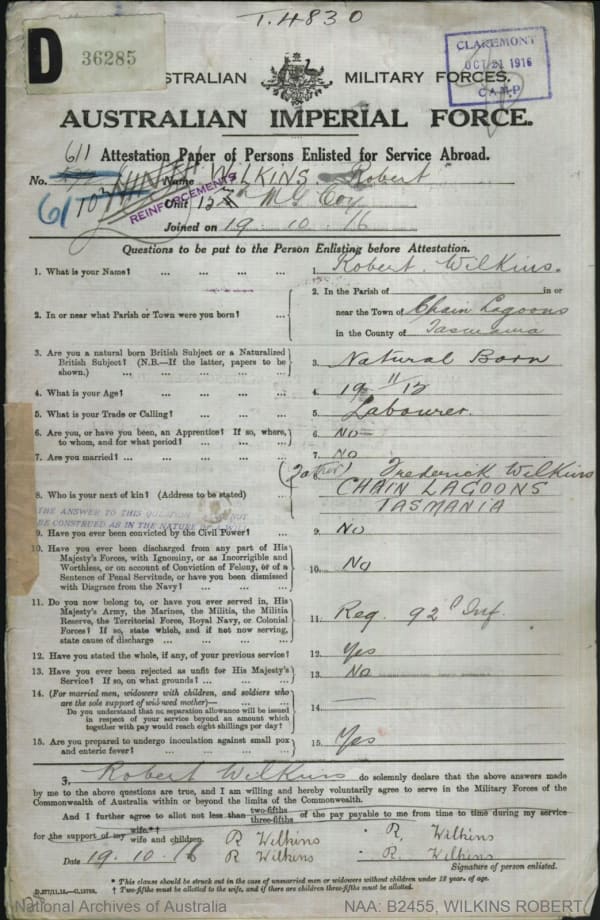 T.4830
D
36285
CLAREMONT
OCT 21 1916
CAMP
AUSTRALIAN MILITARY FORCES.
AUSTRALIAN IMPERIAL FORCE.
611 Attestation Paper of Persons Enlisted for Service Abroad.
No. Name WILKINS Robert
REINFORCEMENTS
Unit M G Coy
Joined on 19 . 10 . 16
Questions to be put to the Person Enlisting before Attestation.
1. What is your Name? ... ... ... 1. Robert Wilkins.
2. In or near what Parish or Town were you born? ... 2. In the Parish of in or
near the Town of Chain Lagoons
in the County of Tasmania
3. Are you a natural born British Subject or a Naturalized
British Subject? (N.B.—If the latter, papers to be
shown.) ... ... ... ... 3. Natural Born
4. What is your Age? ... ... ... 4. 19 11/12
5. What is your Trade or Calling? ... ... 5. Labourer.
6. Are you, or have you been, an Apprentice? If so, where,
to whom, and for what period? ... ... 6. No
7. Are you married? ... ... ... ... 7. No
8. Who is your next of kin? (Address to be stated) ... 8. (Father) Frederick Wilkins
CHAIN LAGOONS
TASMANIA
THE ANSWER TO THIS QUESTION NOT
BE CONSTRUED AS IN THE NATURE OF A WILL
9. Have you ever been convicted by the Civil Power? ... 9. No
10. Have you ever been discharged from any part of His
Majesty's Forces, with Ignominy, or as Incorrigible and
Worthless, or on account of Conviction of Felony, or of a
Sentence of Penal Servitude, or have you been dismissed
with Disgrace from the Navy? ... ... ... 10. No
11. Do you now belong to, or have you ever served in, His
Majesty's Army, the Marines, the Militia, the Militia
Reserve, the Territorial Force, Royal Navy, or Colonial
Forces? If so, state which, and if not now serving,
state cause of discharge ... ... ... 11. Reg. 92d Inf.
12. Have you stated the whole, if any, of your previous service? 12. Yes
13. Have you ever been rejected as unfit for His Majesty's
Service? If so, on what grounds? ... ... 13. No
14. (For married men, widowers with children, and soldiers who
are the sole support of widowed mother)—
Do you understand that no separation allowance will be issued
in respect of your service beyond an amount which
together with pay would reach eight shillings per day? 14. —
15. Are you prepared to undergo inoculation against small pox
and enteric fever? ... ... ... ... 15. Yes
I, Robert Wilkins do solemnly declare that the above answers made
by me to the above questions are true, and I am willing and hereby voluntarily agree to serve in the Military Forces of the
Commonwealth of Australia within or beyond the limits of the Commonwealth.
And I further agree to allot not less than two-fifths three-fifths of the pay payable to me from time to time during my service
for the support of my wife.*† wife and children. R Wilkins R, Wilkins
Date 19. 10 . 16 R Wilkins R. Wilkins
Signature of person enlisted.
* This clause should be struck out in the case of unmarried men or widowers without children under 18 years of age.
† Two-fifths must be allotted to the wife, and if there are children three-fifths must be allotted.
National Archives of Australia NAA: B2455, WILKINS ROBERT